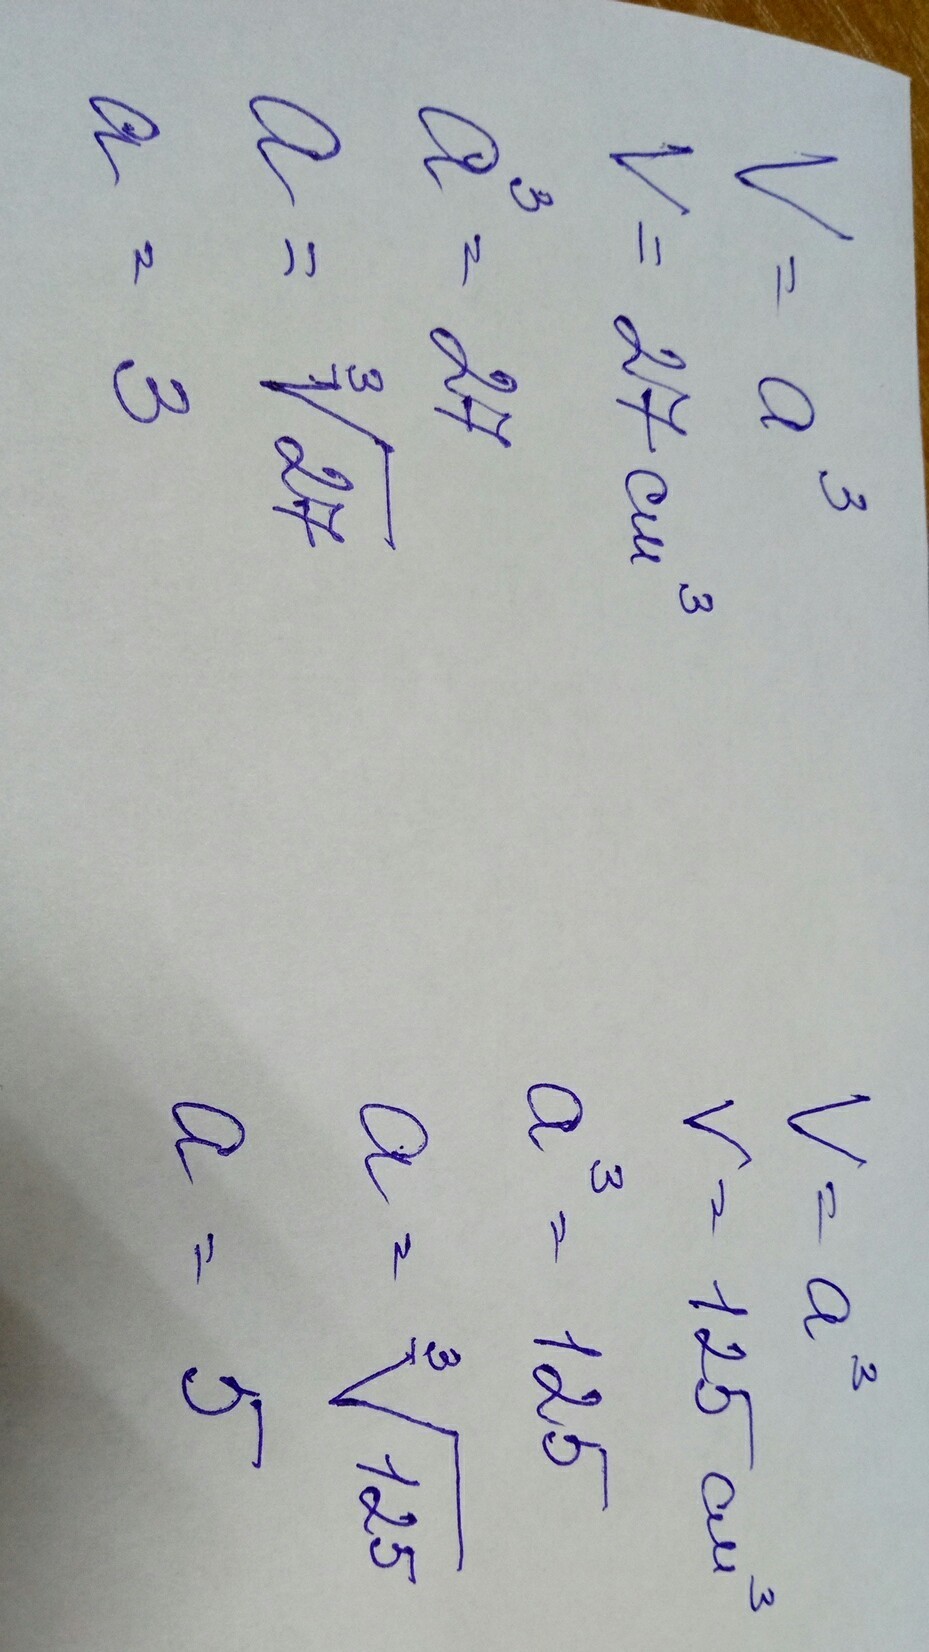 V = a³
V = 27 см³
a³ = 27
a = ∛27
a = 3
V = a³
V = 125 см³
a³ = 125
a = ∛125
a = 5